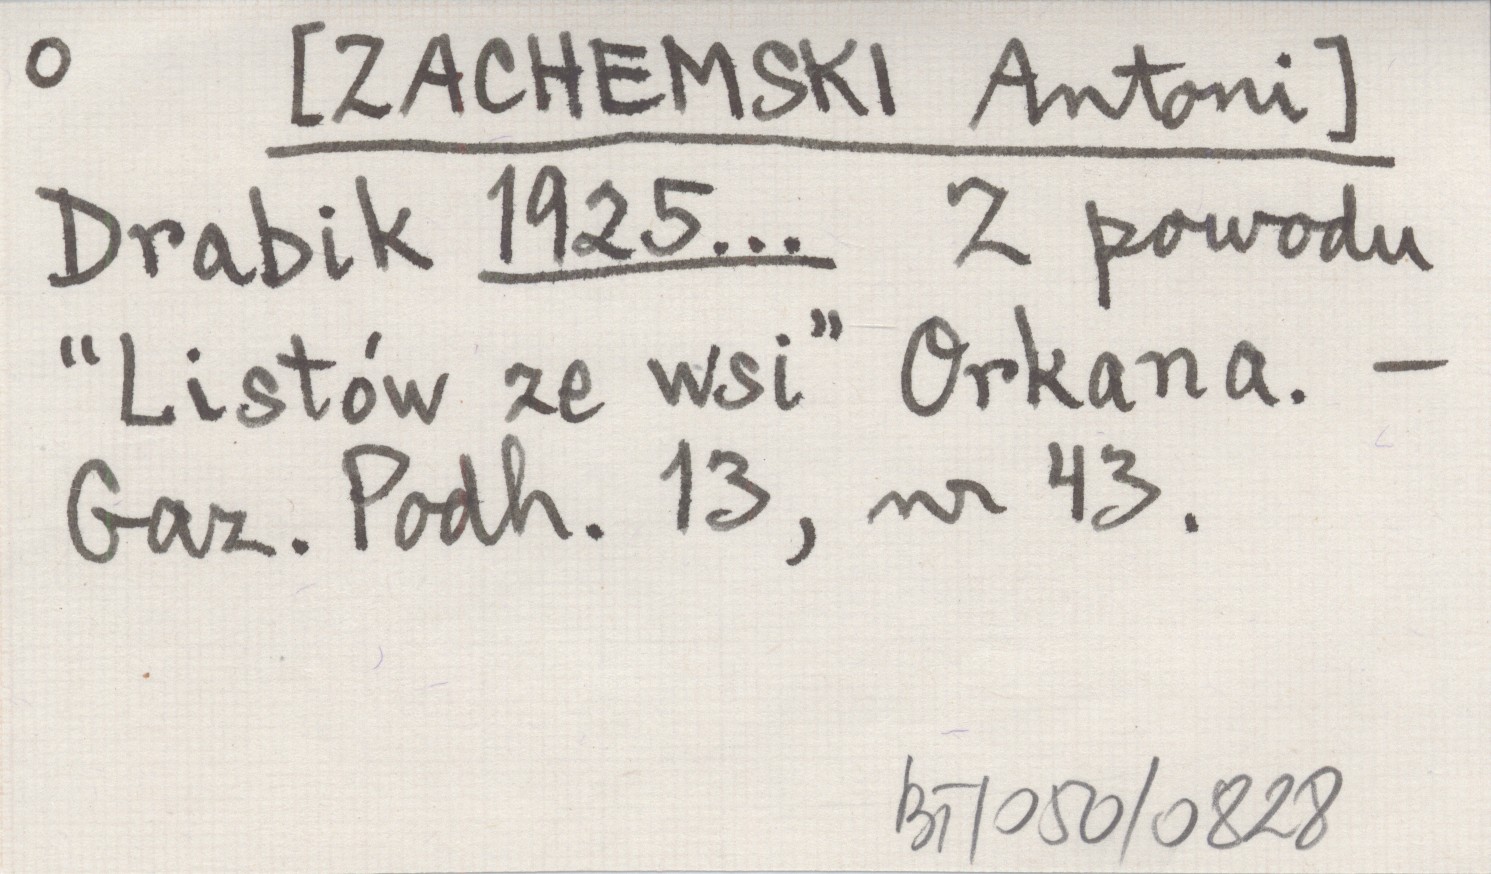 o [ZACHEMSKI Antoni]
Drabik 1925... Z powodu
“Listów ze wsi” Orkana. —
Gaz. Podh. 13, nr 43.
BT/050/0828